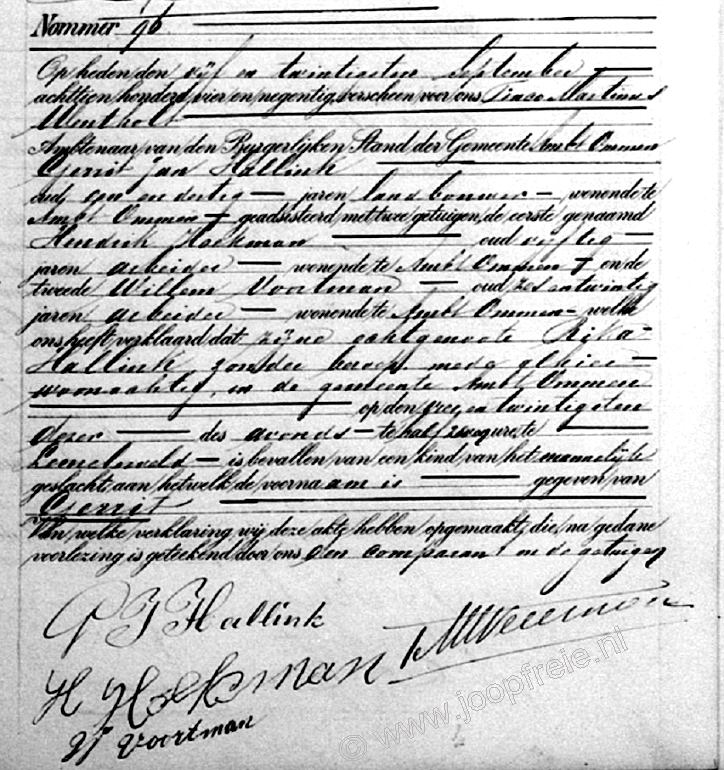 Nommer 96
Op heden den vijf en twintigsten September
achttien honderd vier en negentig, verscheen voor ons Martinus
Ambtenaar van den Burgerlijken Stand der Gemeente Ambt Ommen
Gerrit Jan Hallink
oud een en dertig jaren landbouwer wonende te
Ambt Ommen geadsisteerd met twee getuigen, de eerste genaamd
Hendrik Hoekman oud vijftig
jaren arbeider wonende te Ambt Ommen en de
tweede Willem Voortman oud zes en twintig
jaren arbeider wonende te Ambt Ommen welke
ons heeft verklaard dat zijne echtgenoote Rika
Hallink zonder beroep mede alhier
woonachtig in de gemeente Ambt Ommen
op den en twintigsten
dezer des avonds te half ure, te
Lemelerveld is bevallen van een kind van het mannelijke
geslacht aan hetwelk de voornaam is gegeven van
Gerrit
Van welke verklaring wij deze akte hebben opgemaakt, die, na gedane
voorlezing is geteekend door ons den comparant en de getuigen
G J Hallink
H Hoekman
W Voortman
© www.joopfreie.nl